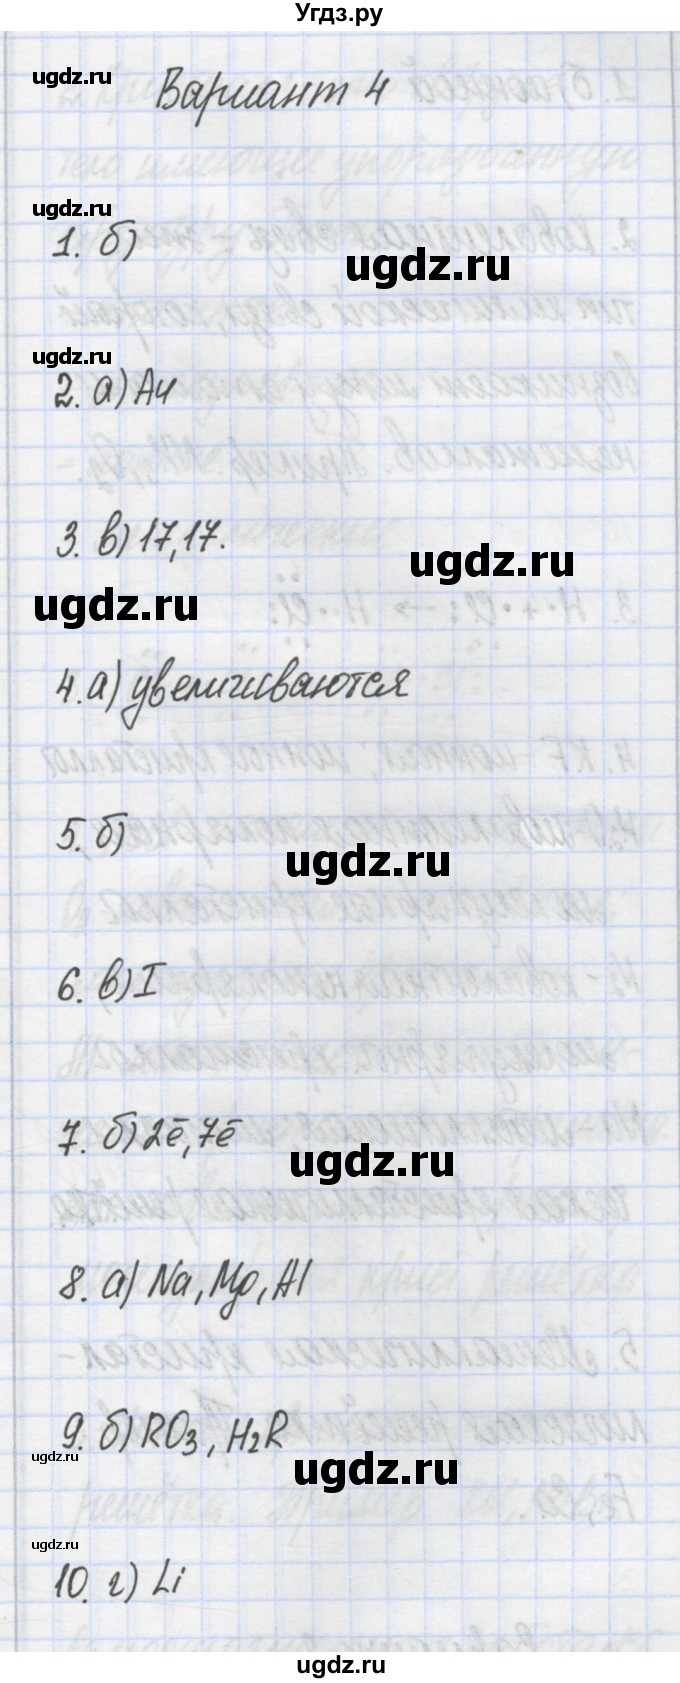 Угдз.ру
ugdz.ru
Вариант 4
ugdz.ru
1. б)
ugdz.ru
ugdz.ru
2. а) Au
3. в) 17,17.
ugdz.ru
ugdz.ru
4. а) увеличиваются
5. б)
ugdz.ru
6. в) I
7. б) 2ē, 7ē
ugdz.ru
8. а) Na, Mg, Al
9. б) RO3, H2R
ugdz.ru
ugdz.ru
ugdz.ru
10. г) Li
ugdz.ru